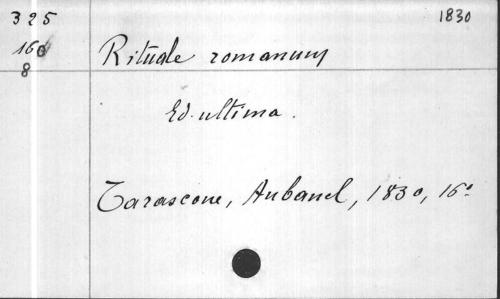 325
1830
16
8
Rituale romanum
Ed. ultima.
Tarascone, Aubanel, 1830, 16º